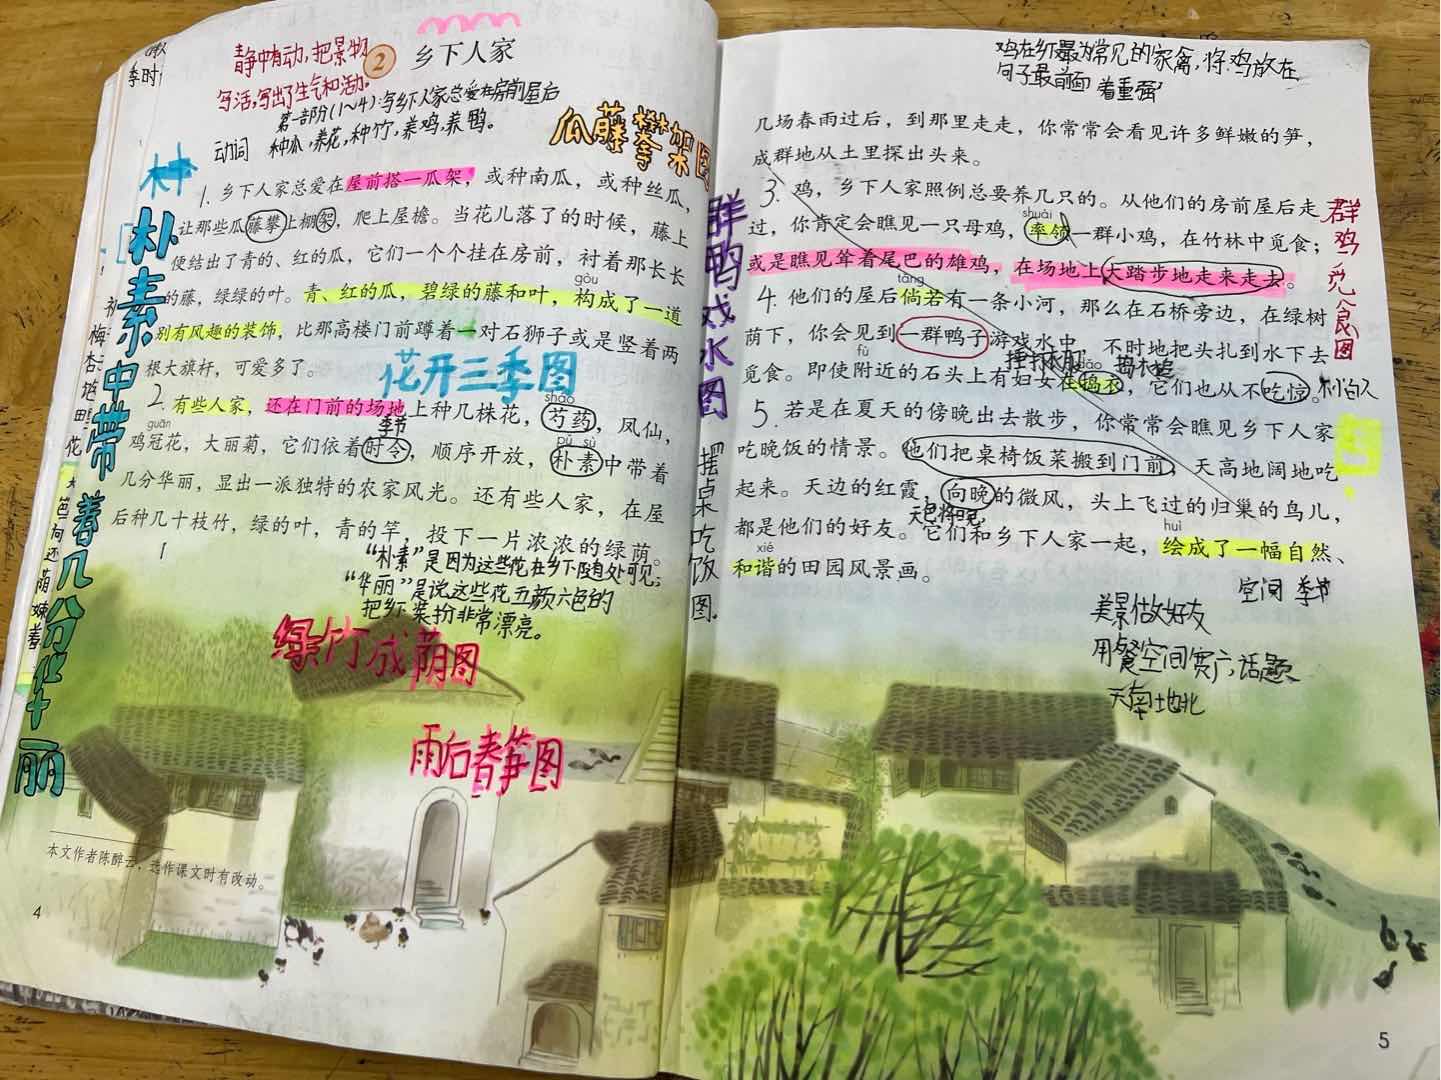 李时
静中有动,把景物
写活,写出了生气和活力。
2 乡下人家
第一部分(1~4):写乡下人家总爱在房前屋后
动词 种瓜,养花,种竹,养鸡,养鸭。
瓜藤攀架图
1. 乡下人家总爱在屋前搭一瓜架，或种南瓜，或种丝瓜，
让那些瓜藤攀上棚架，爬上屋檐。当花儿落了的时候，藤上
便结出了青的、红的瓜，它们一个个挂在房前，衬着那长长
gòu
的藤，绿绿的叶。青、红的瓜，碧绿的藤和叶，构成了一道
别有风趣的装饰，比那高楼门前蹲着一对石狮子或是竖着两
根大旗杆，可爱多了。
花开三季图
sháo
2. 有些人家，还在门前的场地上种几株花，芍药，凤仙，
guān 季节 pǔ sù
鸡冠花，大丽菊，它们依着时令，顺序开放，朴素中带着
几分华丽，显出一派独特的农家风光。还有些人家，在屋
后种几十枝竹，绿的叶，青的竿，投下一片浓浓的绿荫。
朴素中带着几分华丽
“朴素”是因为这些花在乡下随处可见;
“华丽”是说这些花五颜六色的
把乡下装扮非常漂亮。
绿竹成荫图
雨后春笋图
本文作者陈醉云，选作课文时有改动。
4
鸡在乡下最为常见的家禽,将鸡放在
句子最前面 着重强
几场春雨过后，到那里走走，你常常会看见许多鲜嫩的笋，
成群地从土里探出头来。
3. 鸡，乡下人家照例总要养几只的。从他们的房前屋后走
shuài
过，你肯定会瞧见一只母鸡，率领一群小鸡，在竹林中觅食；
或是瞧见耸着尾巴的雄鸡，在场地上大踏步地走来走去。
tǎng
4. 他们的屋后倘若有一条小河，那么在石桥旁边，在绿树
荫下，你会见到一群鸭子游戏水中，不时地把头扎到水下去
fù dǎo
觅食。即使附近的石头上有妇女在捣衣，它们也从不吃惊。
5. 若是在夏天的傍晚出去散步，你常常会瞧见乡下人家
吃晚饭的情景。他们把桌椅饭菜搬到门前，天高地阔地吃
起来。天边的红霞，向晚的微风，头上飞过的归巢的鸟儿，
天色将晚
都是他们的好友。它们和乡下人家一起，绘成了一幅自然、
huì
xié
和谐的田园风景画。
群鸡觅食图
群鸭戏水图
摆桌吃饭图
空间 季节
美景做好友
用餐空间宽广,话题
天南地北
5